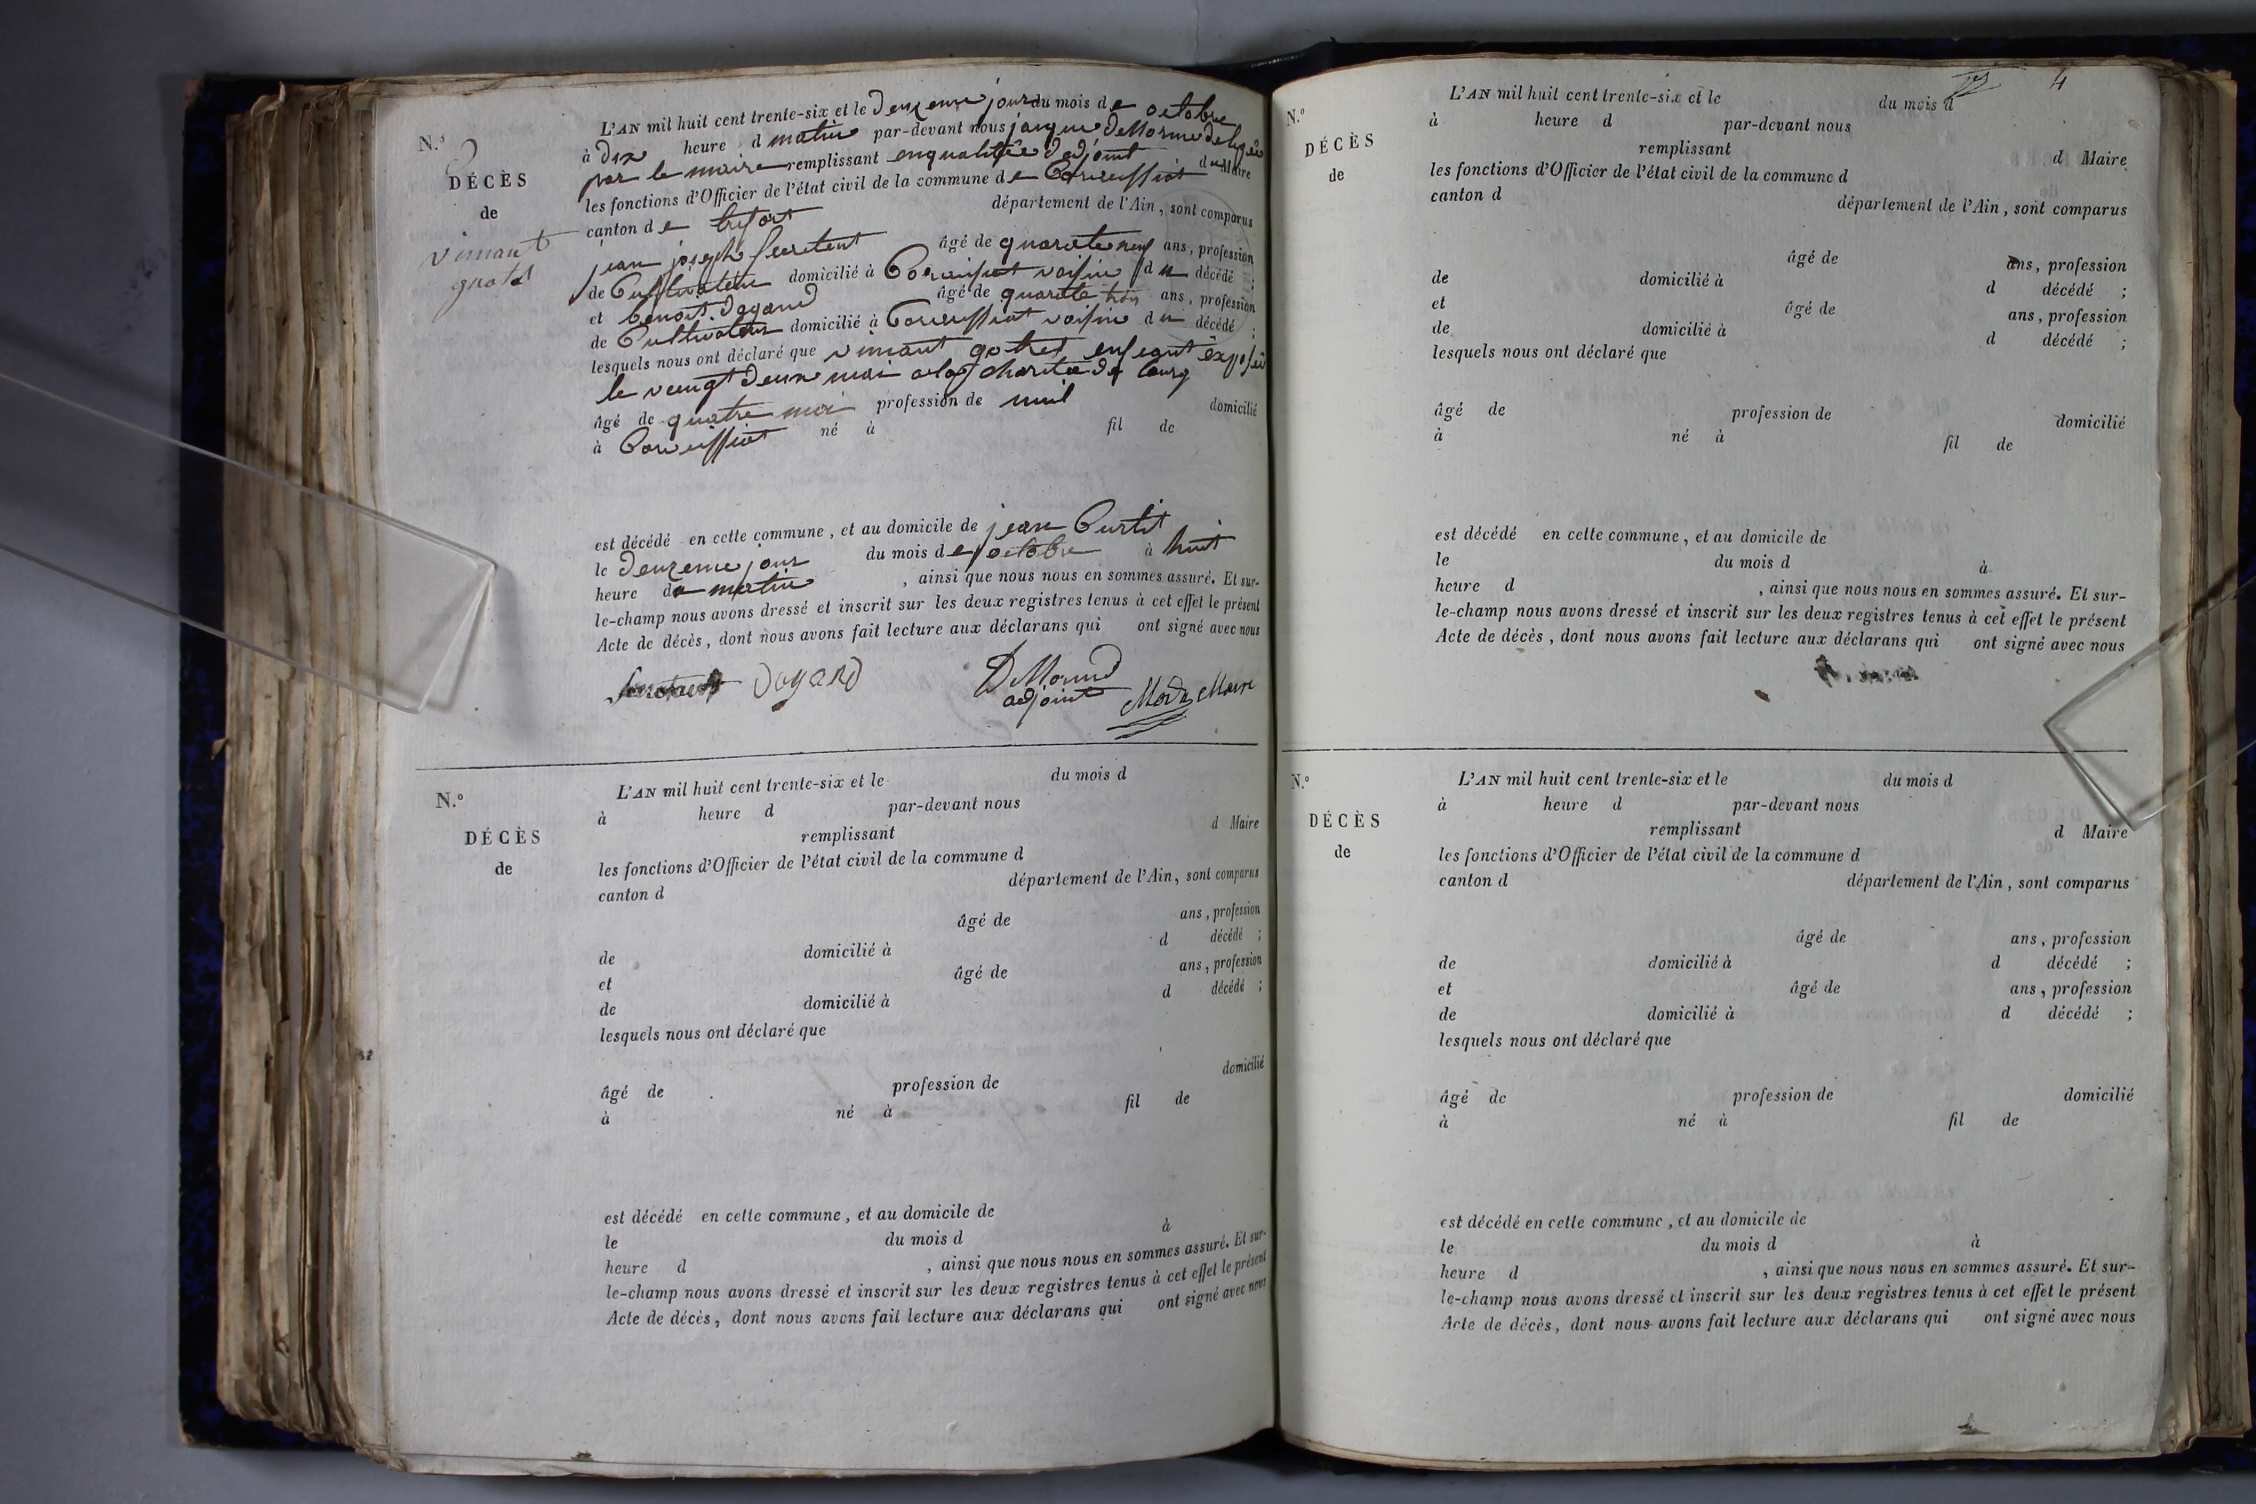 N.° 9
DÉCÈS
de
vimant
gnatd
L'AN mil huit cent trente-six et le deuzeme jour du mois de octobre
à dix heure d matin par-devant nous jacque deMorme delegué
par le maire remplissant enqualitée d'adjoint du Maire
les fonctions d'Officier de l'état civil de la commune de Corveissiat
canton de trefort département de l'Ain, sont comparus
jean joseph Secretent âgé de quarente neuf ans, profession
de Cultivateur domicilié à Corveissiat voisin du décédé ;
et benoit dagand âgé de quarente trois ans, profession
de Cultivateur domicilié à Corveissiat voisin du décédé ;
lesquels nous ont déclaré que vimant enfeant éxposé
le veingt deux mai a la charitée de bourg
âgé de quatre moi profession de nuil domicilié
à Corveissiat né à fil de
est décédé en cette commune, et au domicile de jean Curtit
le deuzeme jour du mois de octobre à huit
heure du matin , ainsi que nous nous en sommes assuré. Et sur-
le-champ nous avons dressé et inscrit sur les deux registres tenus à cet effet le présent
Acte de décès, dont nous avons fait lecture aux déclarans qui ont signé avec nous
Secretent DAGAND DMorme
adjoint Maire
N.°
DÉCÈS
de
L'AN mil huit cent trente-six et le du mois d
à heure d par-devant nous
remplissant d Maire
les fonctions d'Officier de l'état civil de la commune d
canton d département de l'Ain, sont comparus
âgé de ans, profession
de domicilié à d décédé ;
et âgé de ans, profession
de domicilié à d décédé ;
lesquels nous ont déclaré que
âgé de profession de domicilié
à né à fil de
est décédé en cette commune, et au domicile de
le du mois d à
heure d , ainsi que nous nous en sommes assuré. Et sur-
le-champ nous avons dressé et inscrit sur les deux registres tenus à cet effet le présent
Acte de décès, dont nous avons fait lecture aux déclarans qui ont signé avec nous
4
N.°
DÉCÈS
de
L'AN mil huit cent trente-six et le du mois d
à heure d par-devant nous
remplissant d Maire
les fonctions d'Officier de l'état civil de la commune d
canton d département de l'Ain, sont comparus
âgé de ans, profession
de domicilié à d décédé ;
et âgé de ans, profession
de domicilié à d décédé ;
lesquels nous ont déclaré que
âgé de profession de domicilié
à né à fil de
est décédé en cette commune, et au domicile de
le du mois d à
heure d , ainsi que nous nous en sommes assuré. Et sur-
le-champ nous avons dressé et inscrit sur les deux registres tenus à cet effet le présent
Acte de décès, dont nous avons fait lecture aux déclarans qui ont signé avec nous
N.°
DÉCÈS
de
L'AN mil huit cent trente-six et le du mois d
à heure d par-devant nous
remplissant d Maire
les fonctions d'Officier de l'état civil de la commune d
canton d département de l'Ain, sont comparus
âgé de ans, profession
de domicilié à d décédé ;
et âgé de ans, profession
de domicilié à d décédé ;
lesquels nous ont déclaré que
âgé de profession de domicilié
à né à fil de
est décédé en cette commune, et au domicile de
le du mois d à
heure d , ainsi que nous nous en sommes assuré. Et sur-
le-champ nous avons dressé et inscrit sur les deux registres tenus à cet effet le présent
Acte de décès, dont nous avons fait lecture aux déclarans qui ont signé avec nous